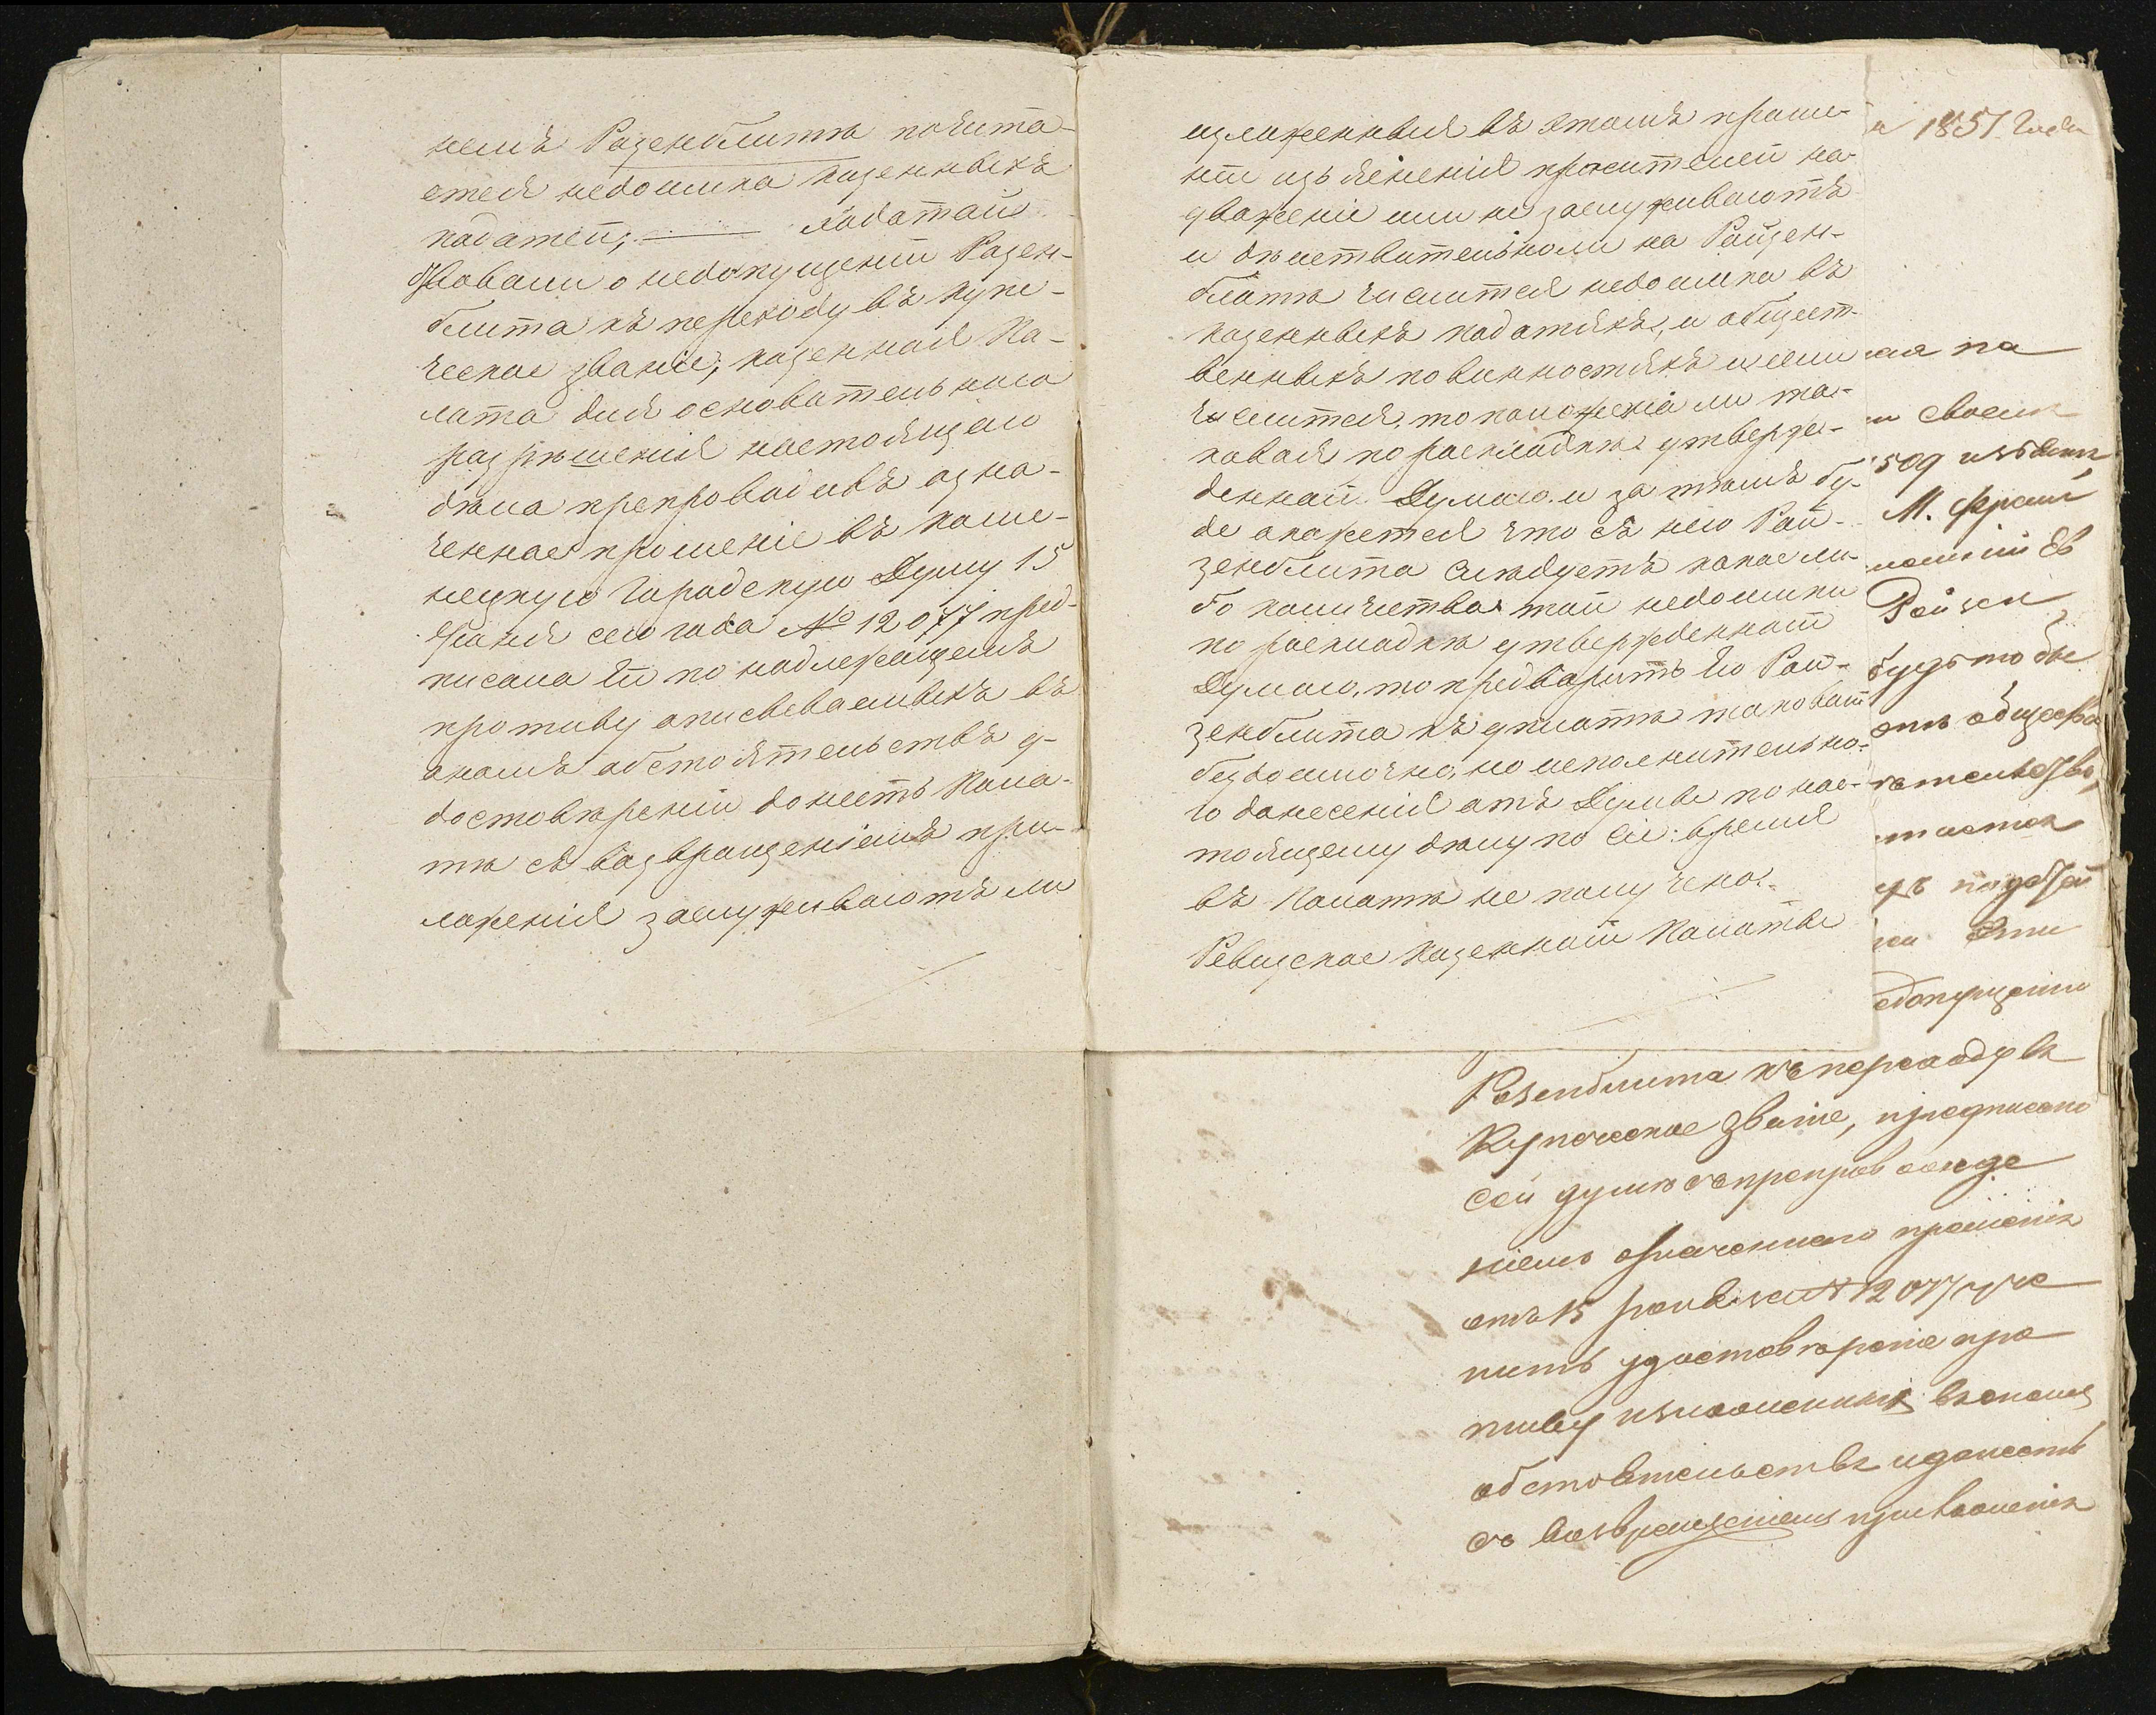 немъ Разенблитъ почита-
ется недоимка казенныхъ
податей; ходатай
ствовали о недопущеніи Разен-
блита къ переходу въ купе-
ческое званіе; казенная Па-
лата для основательнаго
разрѣшенія настоящаго
дѣла препроводивъ озна-
ченное прошеніе въ Каме-
нецкую Городскую Думу 15
Генваря сего года № 12077 пред-
писала ей по надлежащемъ
противу описываемыхъ въ
ономъ обстоятельствъ у-
достовѣреніи донесть Пала-
тѣ съ возвращеніемъ при-
ложенія заслуживаютъ ли
изложенныя въ этомъ проше-
ніи изъясненія просителей на
уваженіе или не заслуживаютъ
и дѣйствительноли на Райзен-
блитѣ числится недоимка въ
казенныхъ податяхъ, и общест-
венныхъ повинностяхъ и если
числится, то положена ли та-
ковая по раскладкѣ утверж-
денной Думою. и за тѣмъ бу-
де окажется что съ него Рай-
зенблита слѣдуетъ какое ли-
бо количество той недоимки
по раскладкѣ утвержденной
Думою, то предварить его Рай-
зенблита къ уплатѣ таковой
бездоимочно, но исполнительна-
го донесенія отъ Думы по нас-
тоящему дѣлу по сіе время
въ Палатѣ не получено.
Ревизское Казенной Палаты
1851 года
на
своемъ
509 изъясн
М.
Ев
Рейзен
будто бы
отъ общества
подат
Эти
едопущеніи
Розенблита къ переходу въ
Купеческое званіе, предписано
сей думѣ съ препровожде
ніемъ означеннаго прошенія
отъ 15 Генваря № 12077 учи
нить удостовѣреніе про
тиву изложенныхъ въ ономъ
обстоятельствъ и донесть
съ возвращеніемъ приложенія